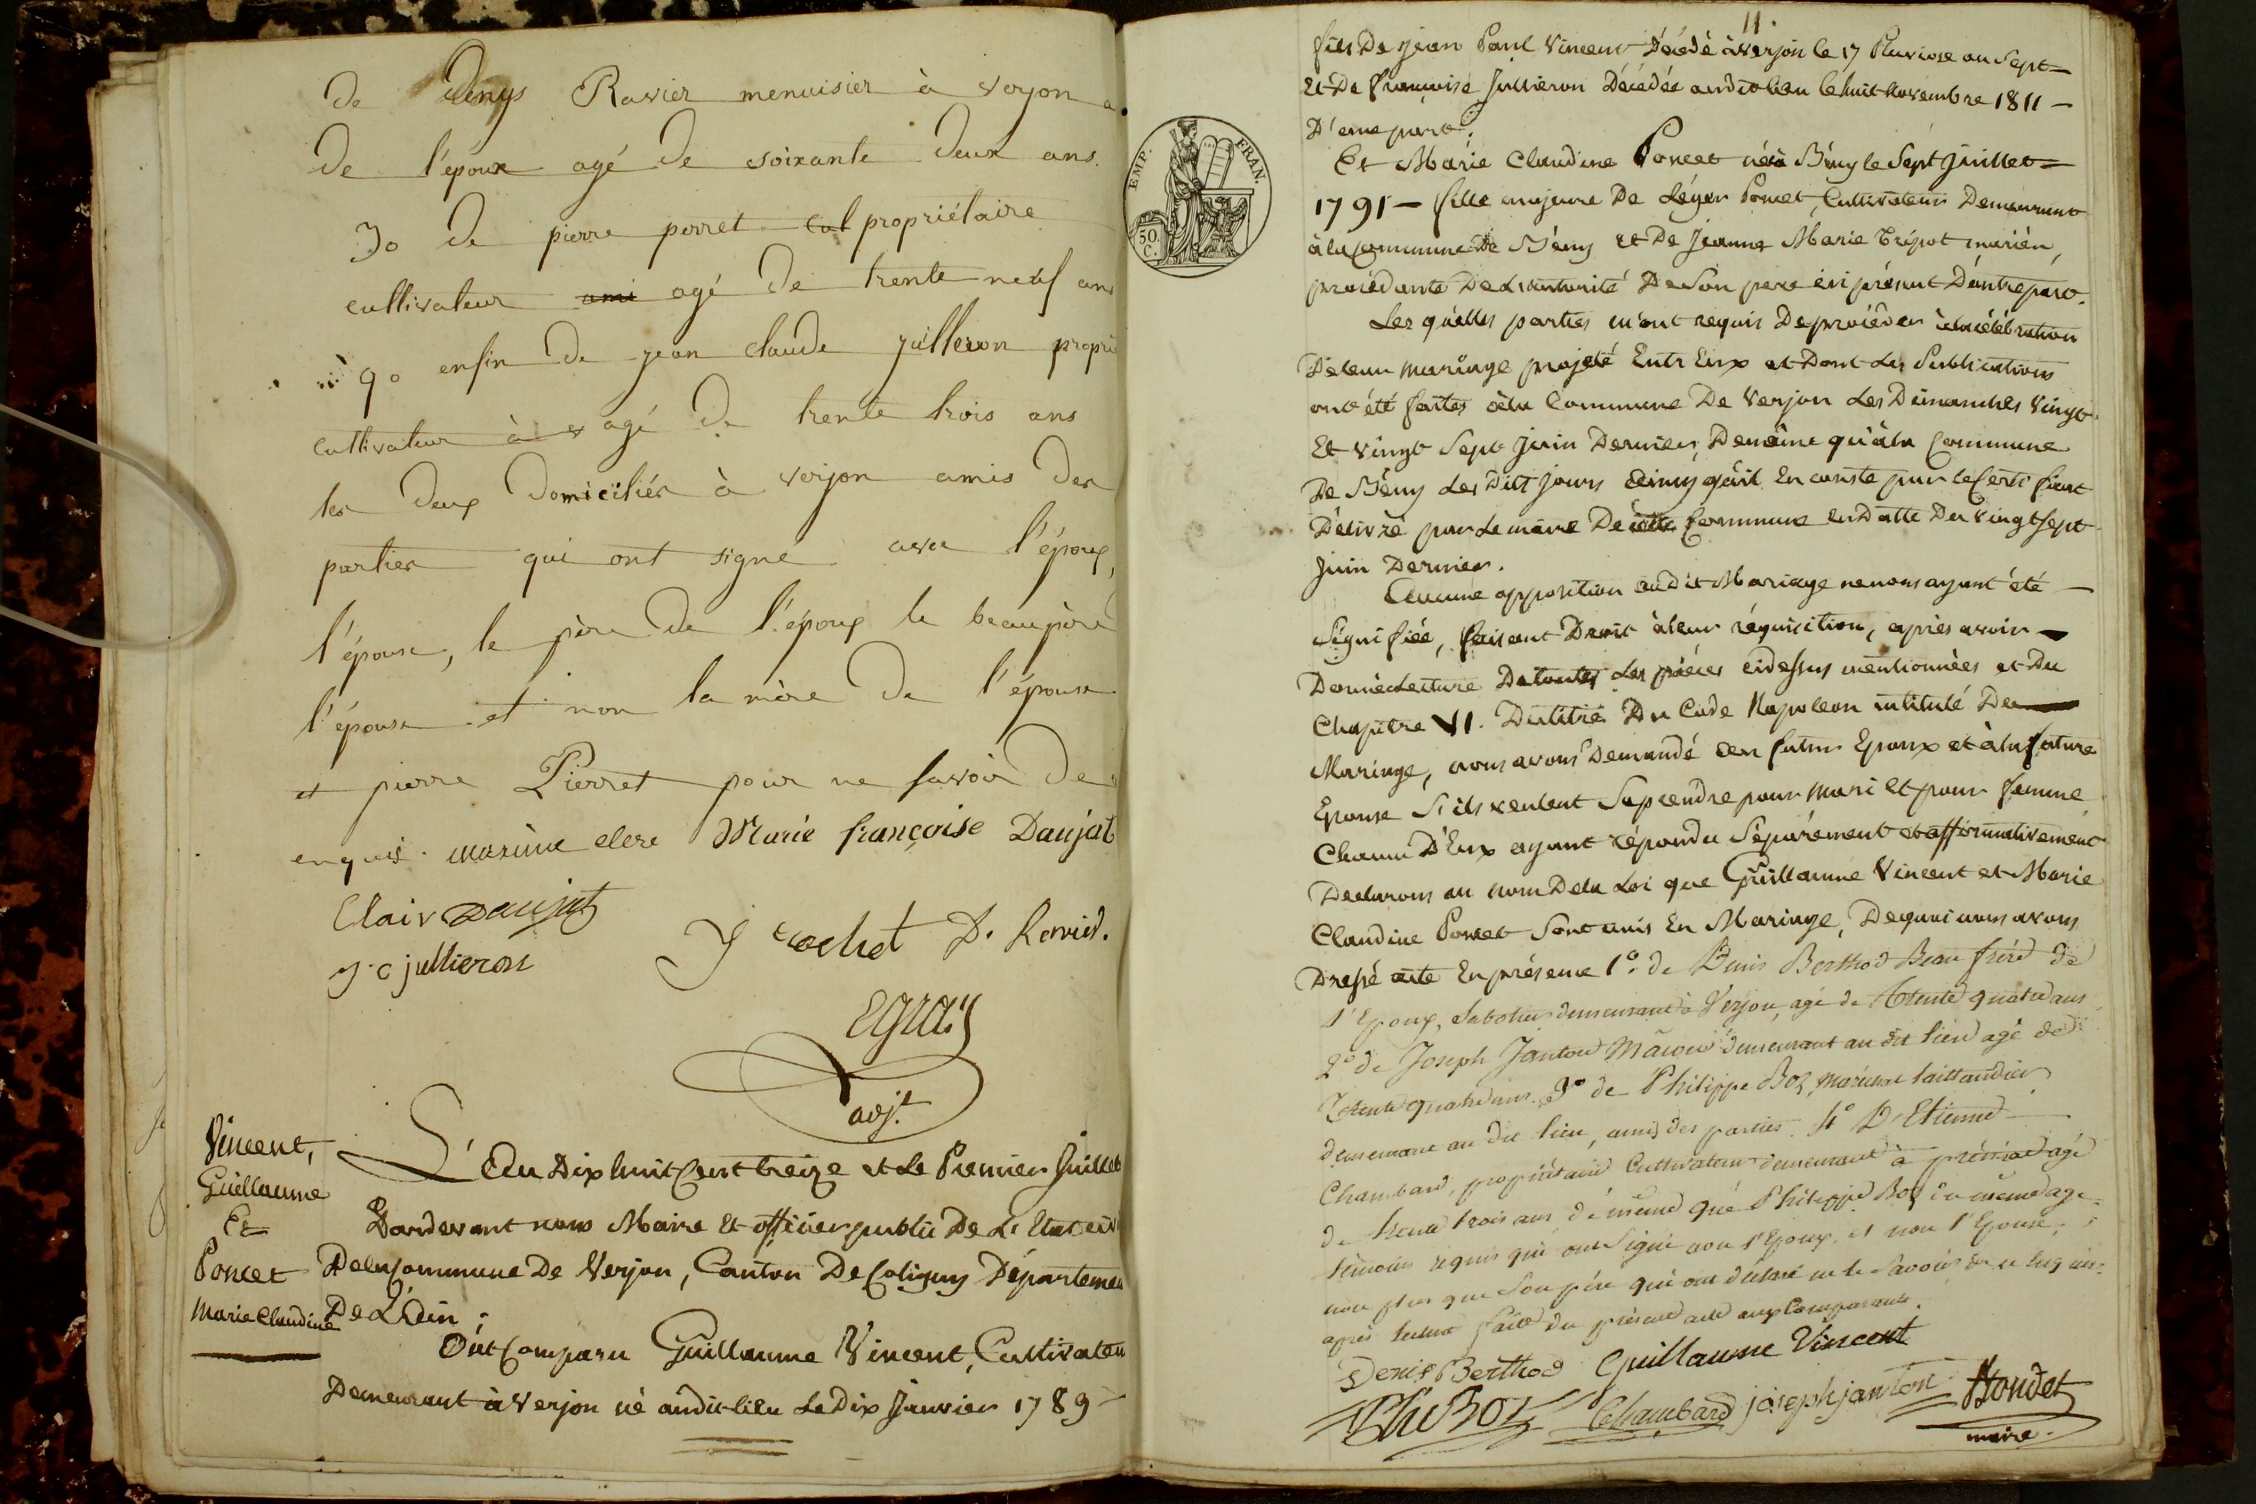 de Denys Ravier menuisier à verjon a
de l'époux agé de soixante deux ans.
3o de pierre perret cul propriétaire
cultivateur ami agé de trente neuf ans
4o enfin de jean claude juilleron propri
cultivateur à v agé de trente trois ans
les deux domiciliés à verjon amis des
parties qui ont signé avec l'époux,
l'épouse, le père de l'époux le beaupère
l'épouse et non la mère de l'épouse
et pierre Pierret pour ne savoir de
enquis. maxime clerc Marie françoise Daujat
Clair Daujat
J cochet D. Ravier.
J. C jullieron
adjt.
Vincent,
Guillaume
Et
Poncet
Marie Claudine
L'An Dix huit Cent treize et Le Premier Juillet
Pardevant nous Maire Et officier public De L'Etat civi
De la Commune De Verjon, Canton De Coligny Département
De L'Ain;
Ont Comparu Guillaume Vincent, Cultivateu
Demeurant à Verjon né audit lieu Le Dix Janvier 1789
11.
fils De jean Paul Vincent Décédé à Verjon le 17 Pluviose an Sept
Et De françoise Jullieron Décédée audit lieu le huit Novembre 1811
D'une part.
EMP. FRAN.
50 C.
Et Marie Claudine Poncet née à Bény le Sept Juillet
1791 fille majeure De Léger Poncet, Cultivateur Demeurant
à la Commune De Bény et De Jeanne Marie Trépot mariés,
procédante De L'autorité De Son pere ici présent D'autre part.
Les quelles parties m'ont requis De procéder à la célébration
De leur mariage projeté Entr Eux et Dont Les Publications
ont été faites à la Commune De Verjon Les Dimanches Vingt
Et Vingt Sept Juin Dernier, De même qu'à la Commune
De Bény Les Dits jours ainsy qu'il En conste par le Certificat
Délivré par Le maire De cette Commune en Datte Du Vingt Sept
Juin Dernier.
Aucune opposition audit Mariage ne nous ayant été
Signifiée, faisant Droit à leur réquisition, après avoir
Donné Lecture De toutes Les pièces cidessus mentionnées et Du
Chapitre VI. Du titre Du Code Napoleon intitulé Du
Mariage, nous avons Demandé au futur Epoux et à la future
Epouse S'ils veulent Se prendre pour mari Et pour femme
Chacun D'Eux ayant répondu Séparément et affirmativement
Declarons au nom De la Loi que Guillaume Vincent et Marie
Claudine Poncet Sont unis En Mariage, De quoi nous avons
Dressé acte En présence 1o. de Denis Berthod Beau frère de
l'Epoux, Sabotier demeurant à Verjon, agé de trente quatre ans
2o de Joseph Janton Maçon demeurant au dit lieu agé de
trente quatre ans. 3o de Philippe Boz, Maréchal taillandier
demeurant au dit lieu, amis des parties. 4o D'Etienne
Chambard, propriétaire Cultivateur demeurant à agé
de trente trois ans de même que Philippe Boz du même age.
témoins requis qui ont Signé avec l'Epoux, et non l'Epouse,
non plus que Son père qui ont déclaré ne le Savoir de ce enquis.
après lecture faite du présent acte aux Comparants.
Denis Berthod Guillaume Vincent
Ph Boz Chambard joseph janton Hondet
maire.